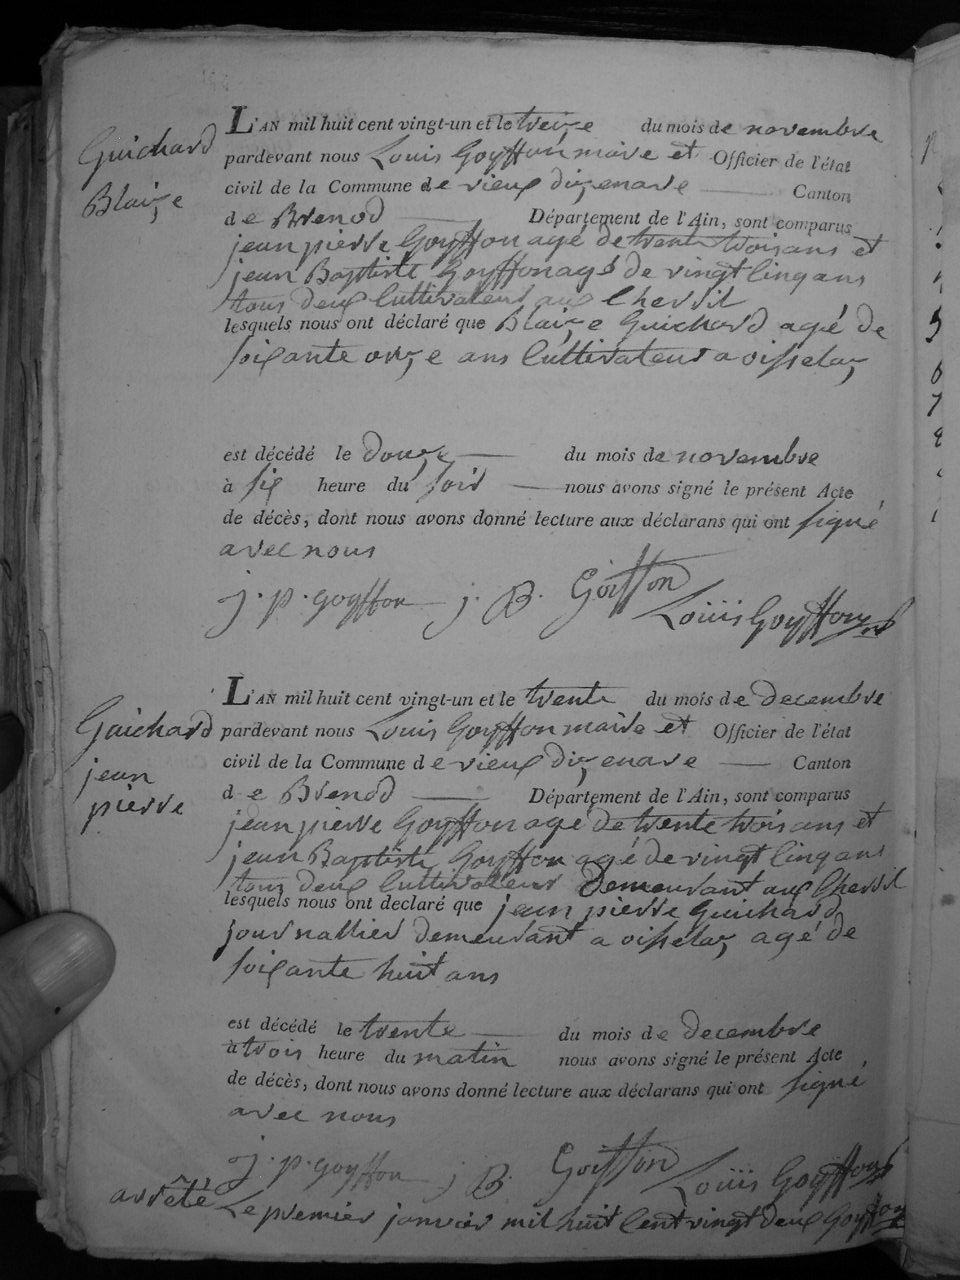 Guichard
Blaize
L'AN mil huit cent vingt-un et le treize du mois de novembre
pardevant nous Louis Goyffon maire et Officier de l'état
civil de la Commune de vieux dizenave Canton
de Brenod Département de l'Ain, sont comparus
jean pierre Goyffon agé de trente trois ans et
jean Baptiste Goyffon agé de vingt cinq ans
tous deux Cultivateur aux Chevril
lesquels nous ont déclaré que Blaize Guichard agé de
soixante onze ans Cultivateur a oisselaz
est décédé le douze du mois de novembre
à six heure du soir nous avons signé le présent Acte
de décès, dont nous avons donné lecture aux déclarans qui ont signé
avec nous
j. p. goyffon j. B. Goiffon
Louiis Goyffon
Guichard
jean
pierre
L'AN mil huit cent vingt-un et le trente du mois de decembre
pardevant nous Louis Goyffon maire et Officier de l'état
civil de la Commune de vieux dizenave Canton
de Brenod Département de l'Ain, sont comparus
jean pierre Goyffon agé de trente trois ans et
jean Baptiste Goyffon agé de vingt cinq ans
tous deux Cultivateur demeurant aux Chevril
lesquels nous ont declaré que jean pierre Guichard
journallier demeurant a oisselaz agé de
soixante huit ans
est décédé le trente du mois de decembre
à trois heure du matin nous avons signé le présent Acte
de décès, dont nous avons donné lecture aux déclarans qui ont signé
avec nous
j. p. goyffon j B. Goiffon Louiis Goyffon
arrêté Le premier janvier mil huit Cent vingt deux Goyffon